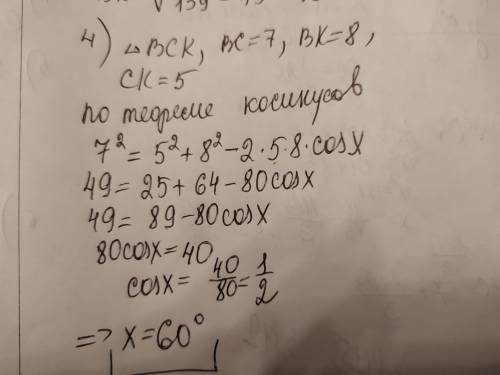 4) △BCK, BC=7, BK=8,
CK=5
по теореме косинусов
7² = 5² + 8² − 2·5·8·cosx
49 = 25 + 64 − 80cosx
49 = 89 − 80cosx
80cosx = 40
cosx = 40/80 = 1/2
=> x = 60°